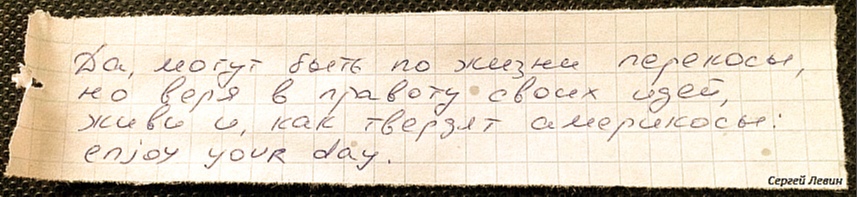 Да, могут быть по жизни перекосы,
но веря в правоту своих идей,
живи и, как твердят америкосы:
enjoy your day.
Сергей Левин